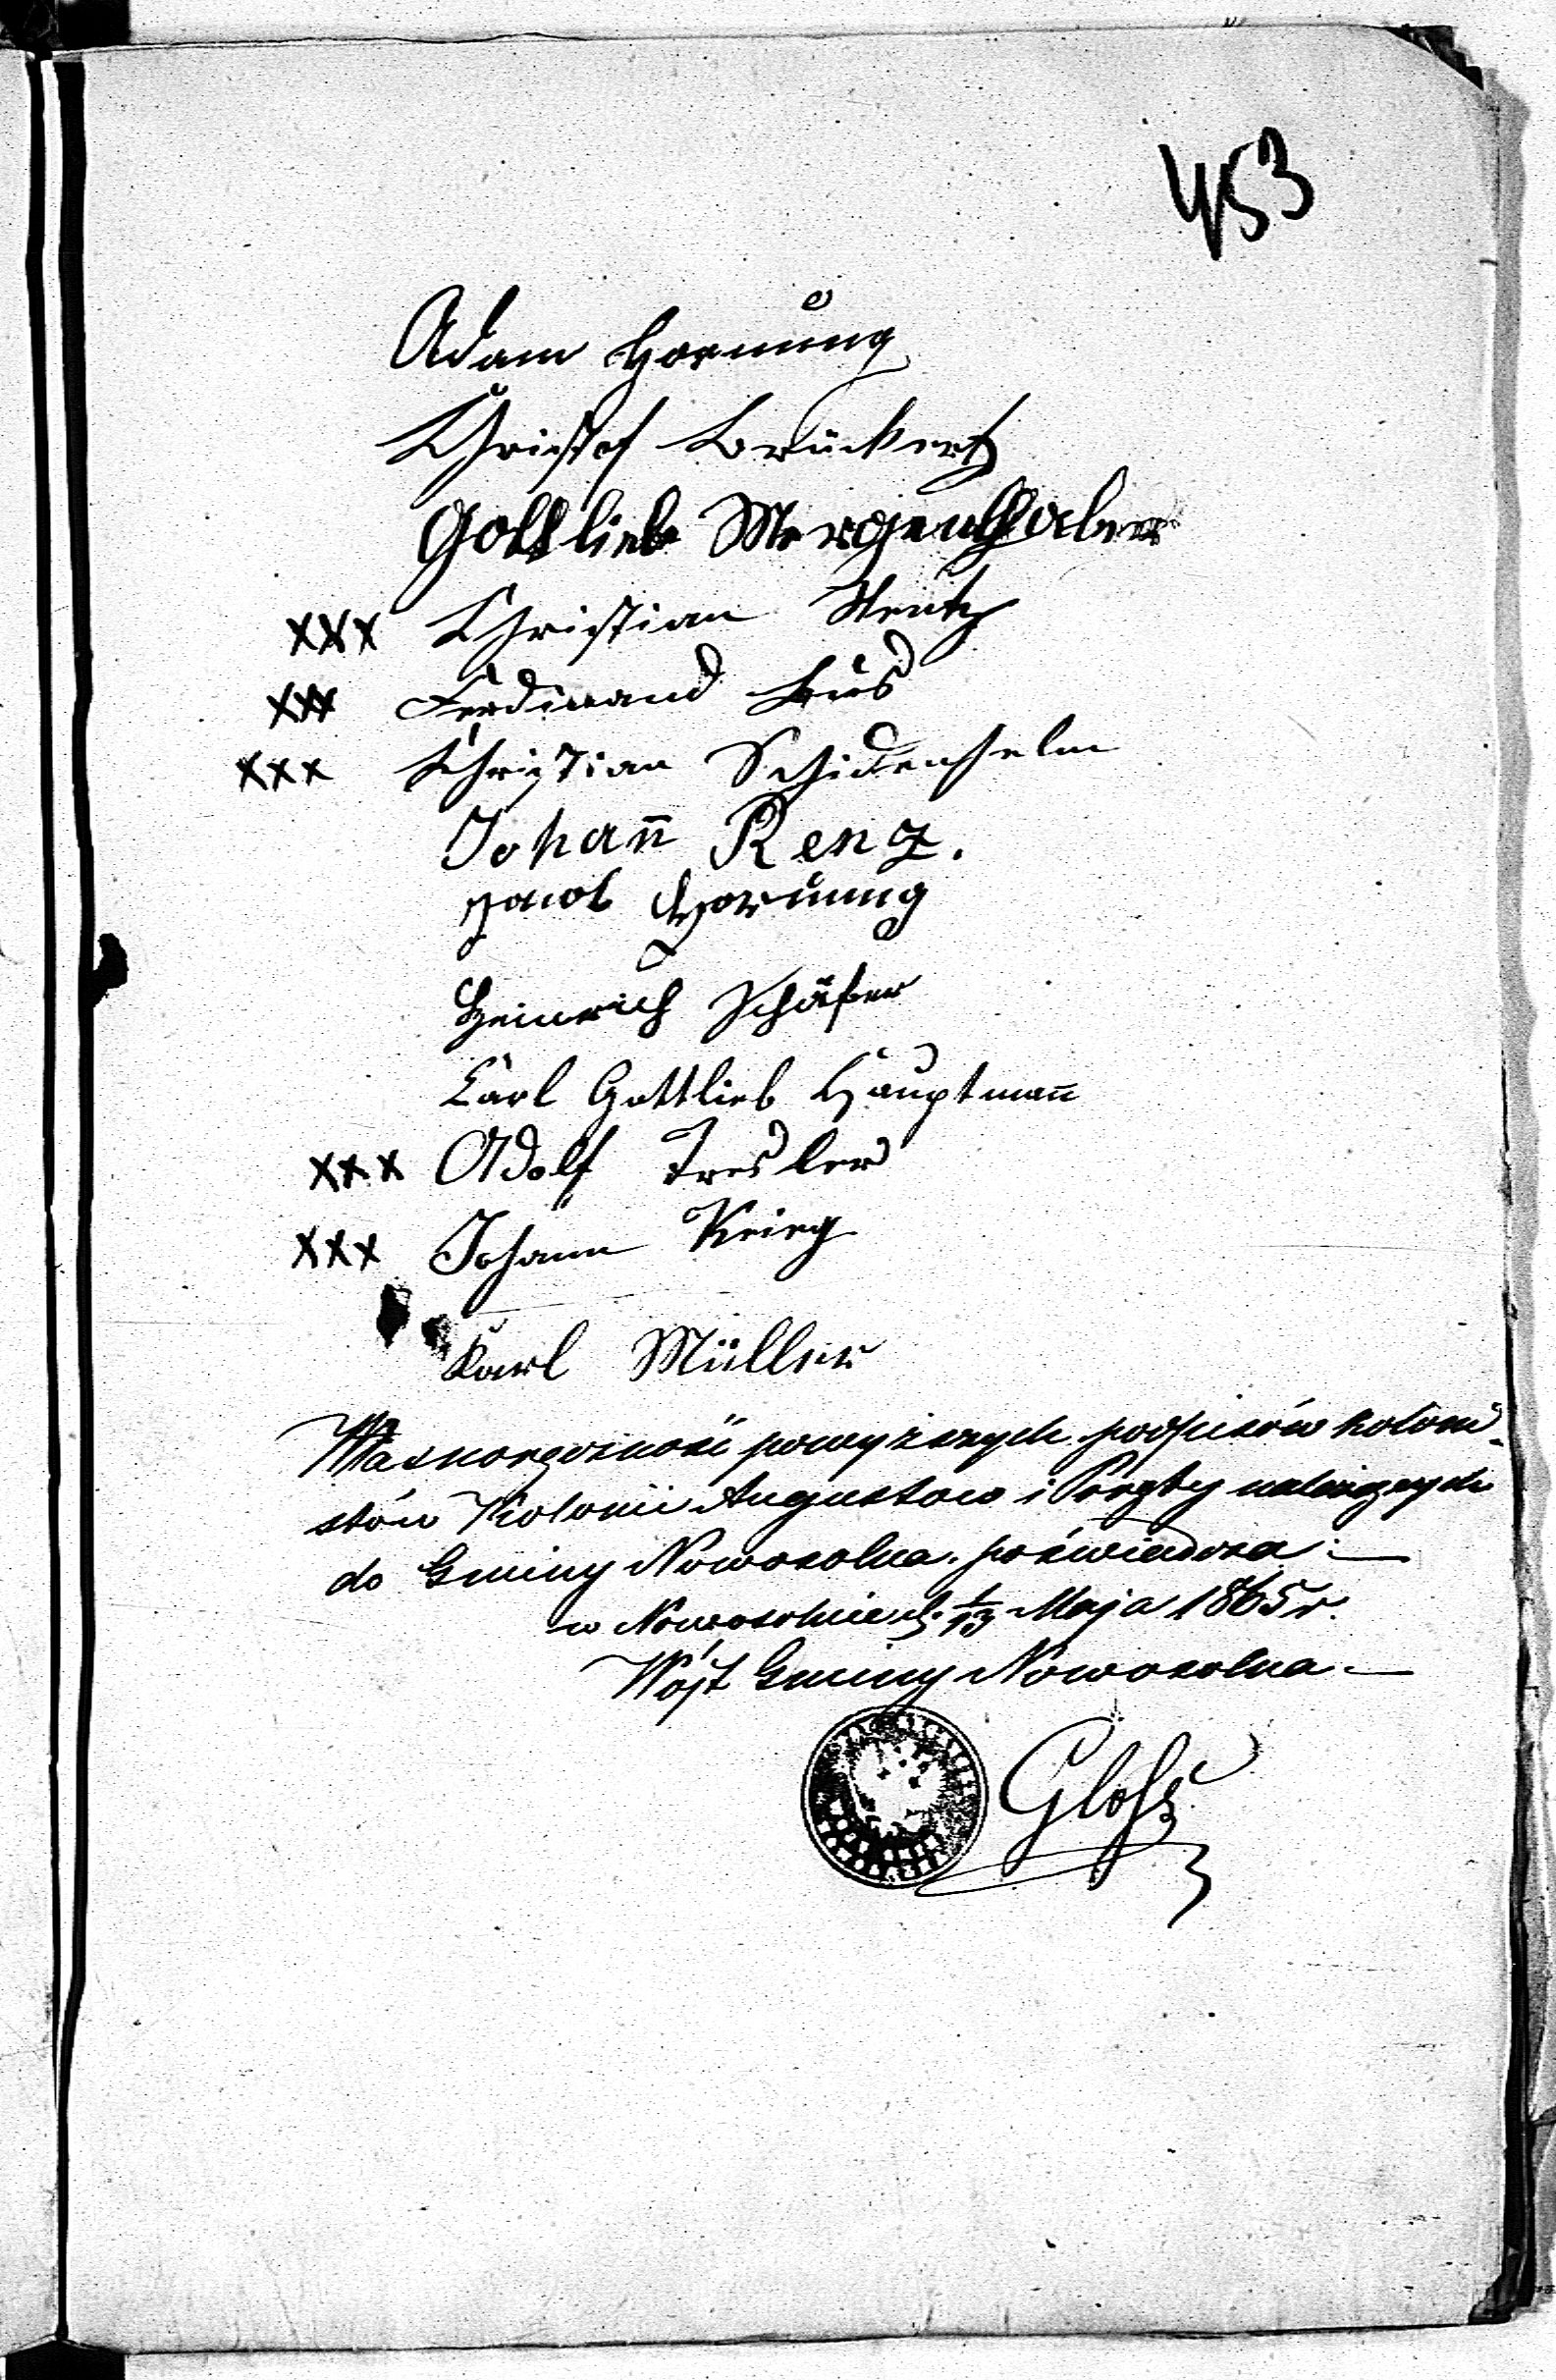 453
Adam Hornung
Christof Brückert
Gottlieb Mergenthaler
XXX Christian Wentz
XXX Ferdinand
XXX Christian
Johan̄ Renz.
Jacob Hornung
Heinrich Schäfer
Carl Gottlieb Hauptman̄
XXX Adolf Tresler
XXX Johann Krieg
Karl Müller
Własnoręczność powyższych podpisów koloni-
stów Kolonii Augustow i Poręby należących
do Gminy Nowosolna. poświadcza.—
w Nowosolnie d. 1/13 Maja 1865 r.
Wójt Gminy Nowosolna.—